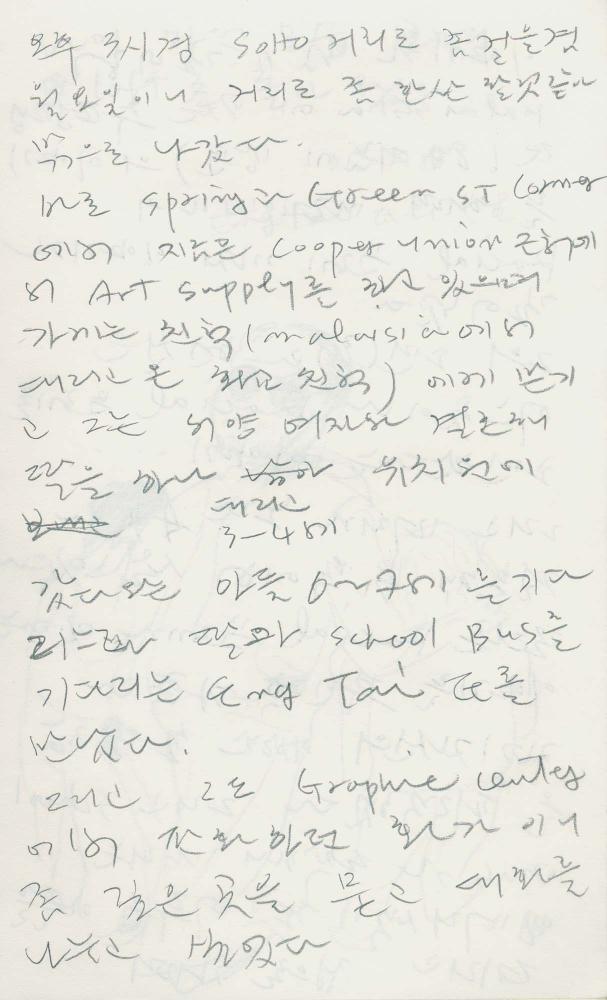 오후 3시경 SOHO 거리로 좀 걸을겸
월요일이니 거리로 좀 한산 할것같아
밖으로 나갔다.
바로 spring과 Green ST Corner
에서 지금은 Cooper union 근처에
서 Art supply를 하고 있으며
가끼는 친척 (malaisia에서
데리고 온 화교 친척) 에게 맏기
고 그는 서양 여자와 결혼해
딸을 하나 유치원에
데리고
3-4세
갔다오는 아들 6~7세 를 기다
리느라 딸와 school Bus를
기다리는 Eng Tai 를
만났다.
그리고 그도 Graphic center
에서 판화하던 화가 이니
좀 깊은 곳을 묻고 대화를
나누고 헤여졌다